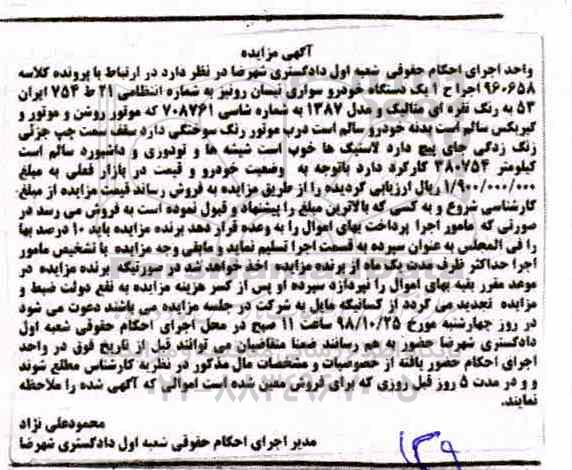 آگهی مزایده
واحد اجرای احکام حقوقی شعبه اول دادگستری شهرضا در نظر دارد در ارتباط با پرونده کلاسه
۹۶۰۶۵۸ اجرا ح ۱ یک دستگاه خودرو سواری نیسان رونیز به شماره انتظامی ۲۱ ط ۷۵۴ ایران
۵۳ به رنگ نقره ای متالیک و مدل ۱۳۸۷ به شماره شاسی ۷۰۸۷۶۱ که موتور روشن و موتور و
گیربکس سالم است بدنه خودرو سالم است درب موتور رنگ سوختگی دارد سقف سمت چپ جزئی
رنگ زدگی جای پیچ دارد لاستیک ها خوب است شیشه ها و تودوزی و داشبورد سالم است
کیلومتر ۳۸۰۷۵۴ کارکرد دارد باتوجه به وضعیت خودرو و قیمت در بازار فعلی به مبلغ
۱/۹۰۰/۰۰۰/۰۰۰ ریال ارزیابی گردیده را از طریق مزایده به فروش رساند قیمت مزایده از مبلغ
کارشناسی شروع و به کسی که بالاترین مبلغ را پیشنهاد و قبول نموده است به فروش می رسد در
صورتی که مامور اجرا پرداخت بهای اموال را به وعده قرار دهد برنده مزایده باید ۱۰ درصد بها
را فی المجلس به عنوان سپرده به قسمت اجرا تسلیم نماید و مابقی وجه مزایده با تشخیص مامور
اجرا حداکثر ظرف مدت یک ماه از برنده مزایده اخذ خواهد شد در صورتیکه برنده مزایده در
موعد مقرر بقیه بهای اموال را نپردازد سپرده او پس از کسر هزینه مزایده به نفع دولت ضبط و
مزایده تجدید می گردد از کسانیکه مایل به شرکت در جلسه مزایده می باشند دعوت می شود
در روز چهارشنبه مورخ ۹۸/۱۰/۲۵ ساعت ۱۱ صبح در محل اجرای احکام حقوقی شعبه اول
دادگستری شهرضا حضور به هم رسانند ضمنا متقاضیان می توانند قبل از تاریخ فوق در واحد
اجرای احکام حضور یافته از خصوصیات و مشخصات مال مذکور در نظریه کارشناس مطلع شوند
و و در مدت ۵ روز قبل روزی که برای فروش معین شده است اموالی که آگهی شده را ملاحظه
نمایند.
محمودعلی نژاد
مدیر اجرای احکام حقوقی شعبه اول دادگستری شهرضا
۱۳۹